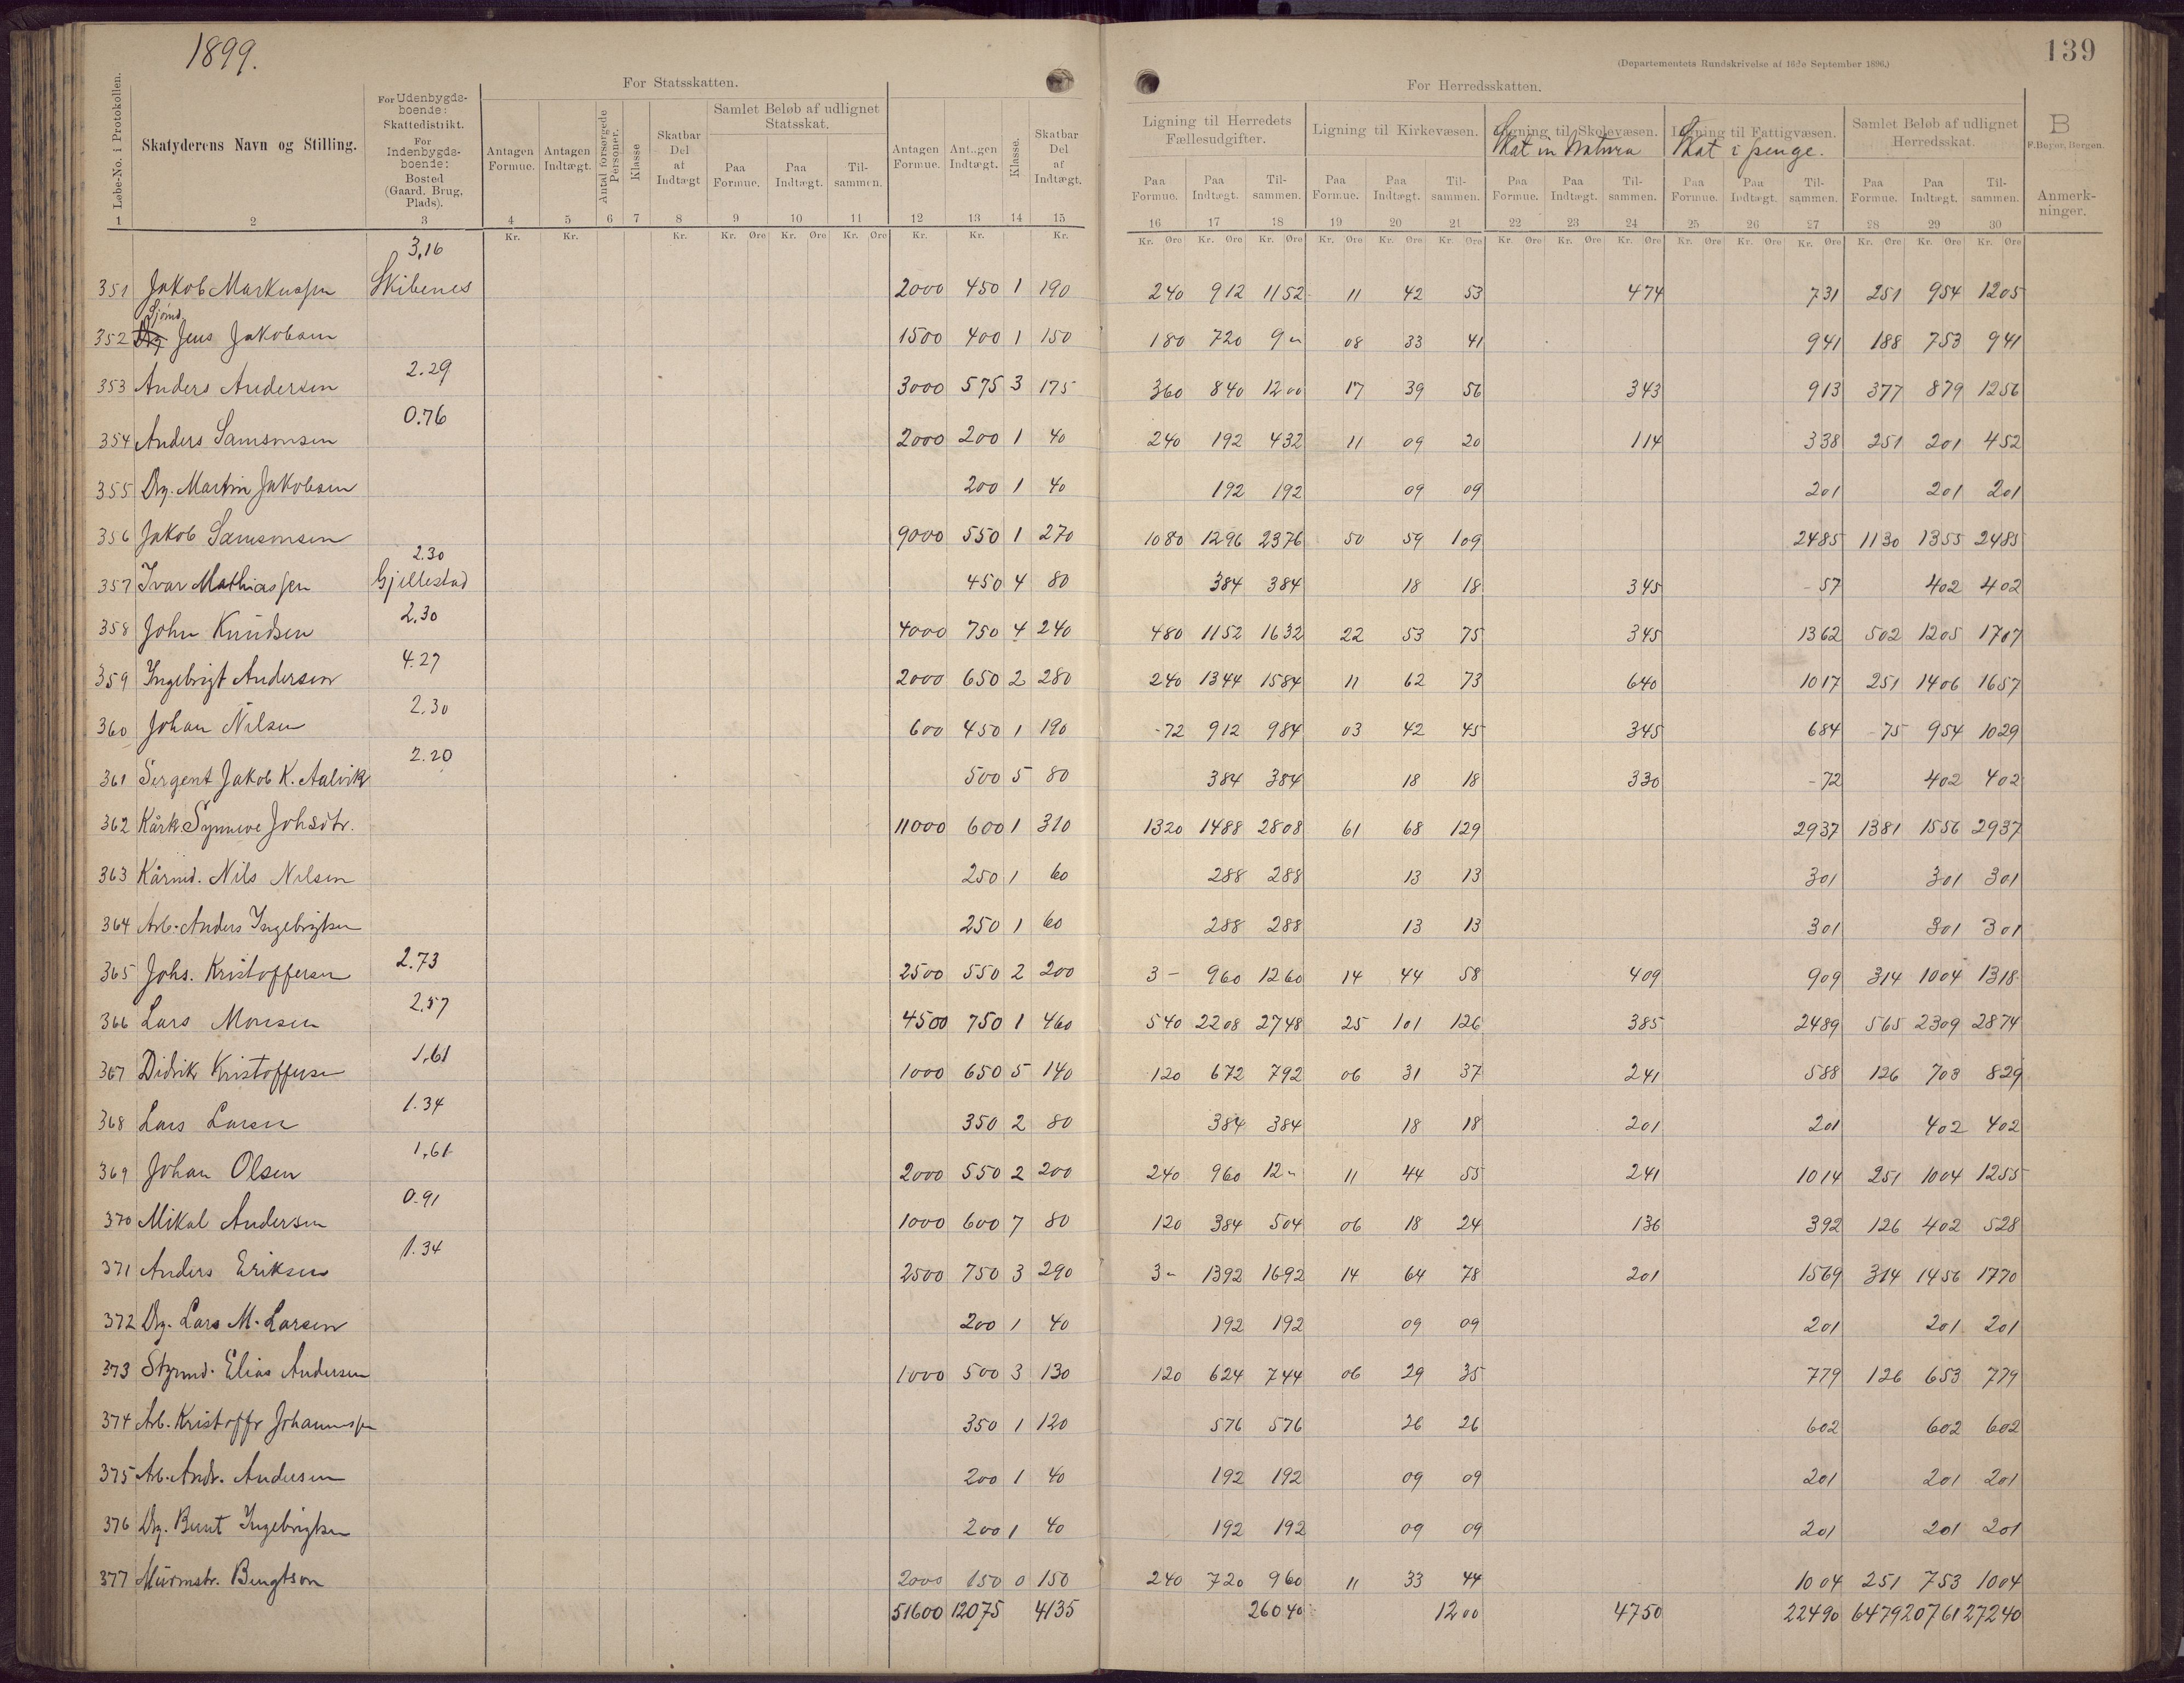 1899.
139
(Departementets Rundskrivelse af 16de September 1896.)
For Statsskatten.
For Herredsskatten.
Løbe-No. i Protokollen.
Skatyderens Navn og Stilling.
For Udenbygdsboende: Skattedistrikt. For Indenbygdsboende: Bosted (Gaard, Brug, Plads).
Antagen Formue. Antagen Indtægt. Antal forsørgede Personer. Klasse Skatbar Del af Indtægt
Samlet Beløb af udlignet Statsskat.
Paa Formue. Paa Indtægt. Tilsammen.
Antagen Formue. Antagen Indtægt. Klasse. Skatbar Del af Indtægt.
Ligning til Herredets Fællesudgifter. Ligning til Kirkevæsen. Ligning til Skolevæsen. Ligning til Fattigvæsen. Samlet Beløb af udlignet Herredsskat.
Skat in Natura Skat i penge.
B
F. Beyer, Bergen.
Anmerkninger.
Paa Formue. Paa Indtægt. Tilsammen. Paa Formue. Paa Indtægt. Tilsammen. Paa Formue. Paa Indtægt. Tilsammen. Paa Formue. Paa Indtægt. Tilsammen. Paa Formue. Paa Indtægt. Tilsammen.
1 2 3 4 5 6 7 8 9 10 11 12 13 14 15 16 17 18 19 20 21 22 23 24 25 26 27 28 29 30
Kr. Kr. Kr. Kr. Øre Kr. Øre Kr. Øre Kr. Kr. Kr. Kr. Øre Kr. Øre Kr. Øre Kr. Øre Kr. Øre Kr. Øre Kr. Øre Kr. Øre Kr. Øre Kr. Øre Kr. Øre Kr. Øre Kr. Øre Kr. Øre Kr. Øre
3,16
351 Jakob Markussen Skibenes 2000 450 1 190 240 912 1152 11 42 53 474 731 251 954 1205
Sjømd.
352 Jens Jakobsen 1500 400 1 150 180 720 9 " 08 33 41 941 188 753 941
2.29
353 Anders Andersen 3000 575 3 175 360 840 1200 17 39 56 343 913 377 879 1256
0.76
354 Anders Samsonsen 2000 200 1 40 240 192 432 11 09 20 114 338 251 201 452
355 Drg. Martin Jakobsen 200 1 40 192 192 09 09 201 201 201
356 Jakob Samsonsen 9000 550 1 270 1080 1296 2376 50 59 109 2485 1130 1355 2485
2.30
357 Ivar Mathiassen Gjillestad 450 4 80 384 384 18 18 345 - 57 402 402
2.30
358 John Knudsen 4000 750 4 240 480 1152 1632 22 53 75 345 1362 502 1205 1707
4.27
359 Ingebrigt Andersen 2000 650 2 280 240 1344 1584 11 62 73 640 1017 251 1406 1657
2.30
360 Johan Nilsen 600 450 1 190 -72 912 984 03 42 45 345 684 -75 954 1029
2.20
361 Sergent Jakob K. Aalvik 500 5 80 384 384 18 18 330 -72 402 402
362 Kårk. Synneve Johsdtr. 11000 600 1 310 1320 1488 2808 61 68 129 2937 1381 1556 2937
363 Kårmd. Nils Nilsen 250 1 60 288 288 13 13 301 301 301
364 Arb. Anders Ingebrigtsen 250 1 60 288 288 13 13 301 301 301
2.73
365 Johs. Kristoffersen 2500 550 2 200 3 - 960 1260 14 44 58 409 909 314 1004 1318
2.57
366 Lars Monsen 4500 750 1 460 540 2208 2748 25 101 126 385 2489 565 2309 2874
1,61
367 Didrik Kristoffersen 1000 650 5 140 120 672 792 06 31 37 241 588 126 703 829
1.34
368 Lars Larsen 350 2 80 384 384 18 18 201 201 402 402
1,61
369 Johan Olsen 2000 550 2 200 240 960 12 " 11 44 55 241 1014 251 1004 1255
0.91
370 Mikal Andersen 1000 600 7 80 120 384 504 06 18 24 136 392 126 402 528
1.34
371 Anders Eriksen 2500 750 3 290 3 " 1392 1692 14 64 78 201 1569 314 1456 1770
372 Drg. Lars M. Larsen 200 1 40 192 192 09 09 201 201 201
373 Styrmd. Elias Andersen 1000 500 3 130 120 624 744 06 29 35 779 126 653 779
374 Arb. Kristoffr Johannessen 350 1 120 576 576 26 26 602 602 602
375 Arb. Andr. Andersen 200 1 40 192 192 09 09 201 201 201
376 Drg. Bernt Ingebrigtsen 200 1 40 192 192 09 09 201 201 201
377 Murmstr. Bengtson 2000 150 0 150 240 720 960 11 33 44 1004 251 753 1004
51600 12075 4135 26040 1200 4750 22490 6479 20761 27240